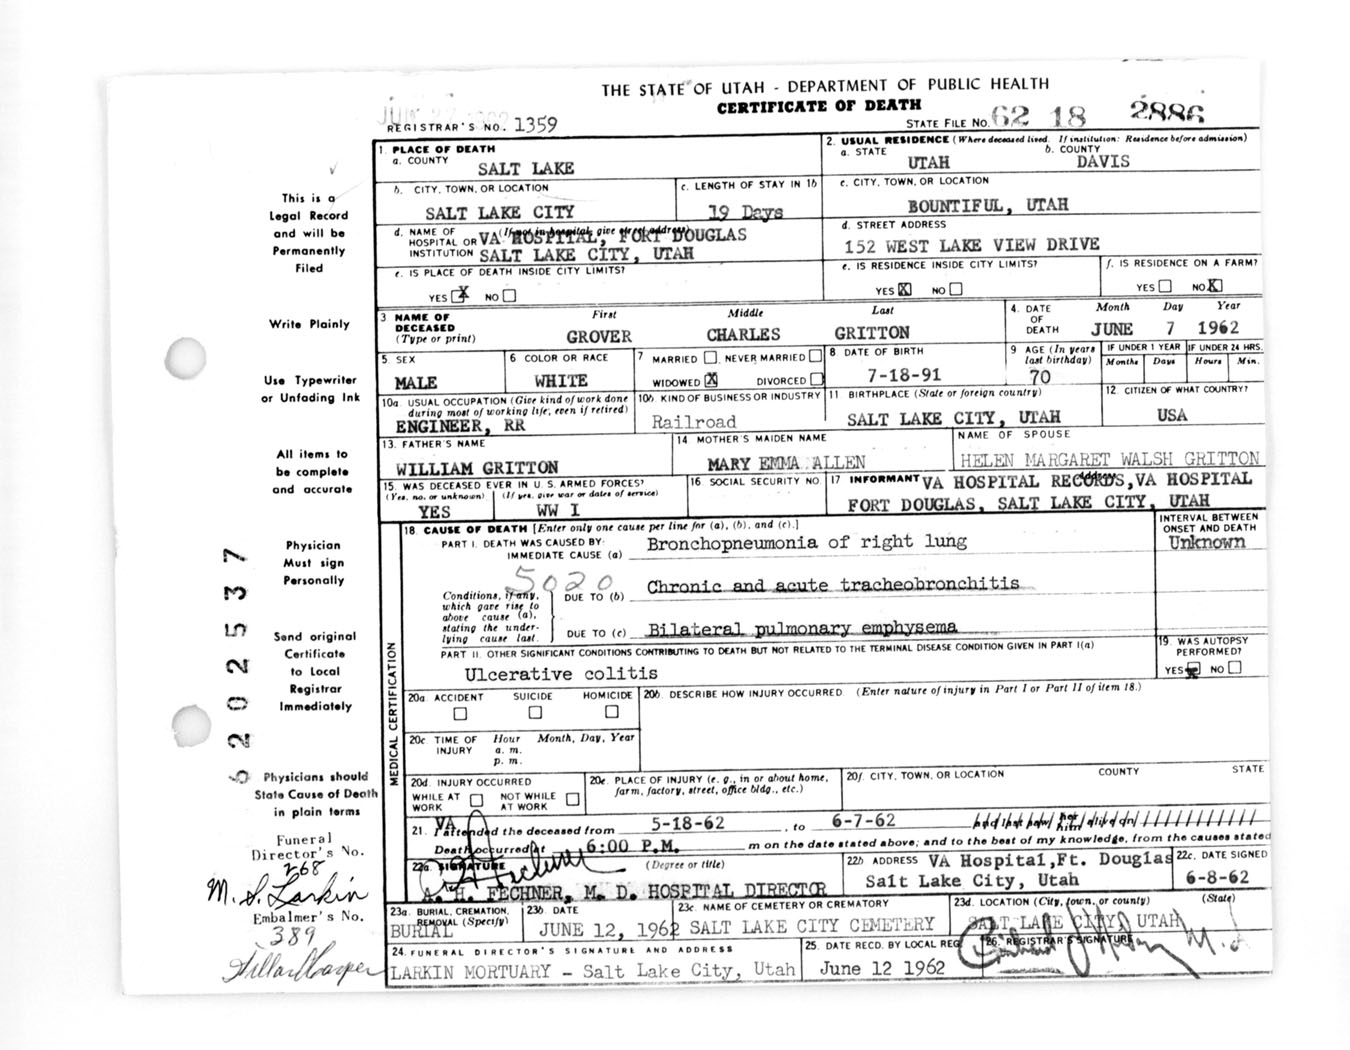 THE STATE OF UTAH - DEPARTMENT OF PUBLIC HEALTH
CERTIFICATE OF DEATH
REGISTRAR'S NO. 1359
STATE FILE NO. 62 18 2886
This is a
Legal Record
and will be
Permanently
Filed
Write Plainly
Use Typewriter
or Unfading Ink
All items to
be complete
and accurate
Physician
Must sign
Personally
Send original
Certificate
to Local
Registrar
Immediately
Physicians should
State Cause of Death
in plain terms
Funeral
Director's No.
268
M. S. Larkin
Embalmer's No.
389
1. PLACE OF DEATH
a. COUNTY
SALT LAKE
2. USUAL RESIDENCE (Where deceased lived. If institution: Residence before admission)
a. STATE
UTAH
b. COUNTY
DAVIS
b. CITY, TOWN, OR LOCATION
SALT LAKE CITY
c. LENGTH OF STAY IN 1b
19 Days
c. CITY, TOWN, OR LOCATION
BOUNTIFUL, UTAH
d. NAME OF HOSPITAL OR INSTITUTION (If not in hospital, give street address)
VA HOSPITAL, FORT DOUGLAS
SALT LAKE CITY, UTAH
d. STREET ADDRESS
152 WEST LAKE VIEW DRIVE
e. IS PLACE OF DEATH INSIDE CITY LIMITS?
YES X NO
e. IS RESIDENCE INSIDE CITY LIMITS?
YES X NO
f. IS RESIDENCE ON A FARM?
YES NO X
3 NAME OF DECEASED (Type or print)
First Middle Last
GROVER CHARLES GRITTON
4. DATE OF DEATH
Month Day Year
JUNE 7 1962
5. SEX
MALE
6 COLOR OR RACE
WHITE
7 MARRIED NEVER MARRIED
WIDOWED X DIVORCED
8 DATE OF BIRTH
7-18-91
9 AGE (In years last birthday)
70
IF UNDER 1 YEAR
Months Days
IF UNDER 24 HRS.
Hours Min.
10a. USUAL OCCUPATION (Give kind of work done during most of working life, even if retired)
ENGINEER, RR
10b. KIND OF BUSINESS OR INDUSTRY
Railroad
11 BIRTHPLACE (State or foreign country)
SALT LAKE CITY, UTAH
12. CITIZEN OF WHAT COUNTRY?
USA
13. FATHER'S NAME
WILLIAM GRITTON
14 MOTHER'S MAIDEN NAME
MARY EMMA ALLEN
NAME OF SPOUSE
HELEN MARGARET WALSH GRITTON
15. WAS DECEASED EVER IN U. S. ARMED FORCES?
(Yes, no, or unknown) (If yes, give war or dates of service)
YES WW I
16. SOCIAL SECURITY NO.
17 INFORMANT Address
VA HOSPITAL RECORDS, VA HOSPITAL
FORT DOUGLAS, SALT LAKE CITY, UTAH
18. CAUSE OF DEATH [Enter only one cause per line for (a), (b), and (c).]
INTERVAL BETWEEN ONSET AND DEATH
PART I. DEATH WAS CAUSED BY:
IMMEDIATE CAUSE (a) Bronchopneumonia of right lung
Unknown
5020
Conditions, if any, which gave rise to above cause (a), stating the underlying cause last.
DUE TO (b) Chronic and acute tracheobronchitis
DUE TO (c) Bilateral pulmonary emphysema
PART II. OTHER SIGNIFICANT CONDITIONS CONTRIBUTING TO DEATH BUT NOT RELATED TO THE TERMINAL DISEASE CONDITION GIVEN IN PART I(a)
Ulcerative colitis
19. WAS AUTOPSY PERFORMED?
YES NO
MEDICAL CERTIFICATION
20a. ACCIDENT SUICIDE HOMICIDE
20b. DESCRIBE HOW INJURY OCCURRED (Enter nature of injury in Part I or Part II of item 18.)
20c. TIME OF INJURY Hour Month, Day, Year
a. m.
p. m.
20d. INJURY OCCURRED
WHILE AT WORK NOT WHILE AT WORK
20e. PLACE OF INJURY (e. g., in or about home, farm, factory, street, office bldg., etc.)
20f. CITY, TOWN, OR LOCATION COUNTY STATE
21. VA attended the deceased from 5-18-62, to 6-7-62 and last saw her him alive on
Death occurred at 6:00 P.M. m on the date stated above; and to the best of my knowledge, from the causes stated
22a. SIGNATURE (Degree or title)
A. H. Fechner
A. H. FECHNER, M. D. HOSPITAL DIRECTOR
22b ADDRESS VA Hospital, Ft. Douglas
Salt Lake City, Utah
22c. DATE SIGNED
6-8-62
23a. BURIAL, CREMATION, REMOVAL (Specify)
BURIAL
23b. DATE
JUNE 12, 1962
23c. NAME OF CEMETERY OR CREMATORY
SALT LAKE CITY CEMETERY
23d. LOCATION (City, town, or county) (State)
SALT LAKE CITY, UTAH
24. FUNERAL DIRECTOR'S SIGNATURE AND ADDRESS
LARKIN MORTUARY - Salt Lake City, Utah
25. DATE RECD. BY LOCAL REG.
June 12 1962
26. REGISTRAR'S SIGNATURE